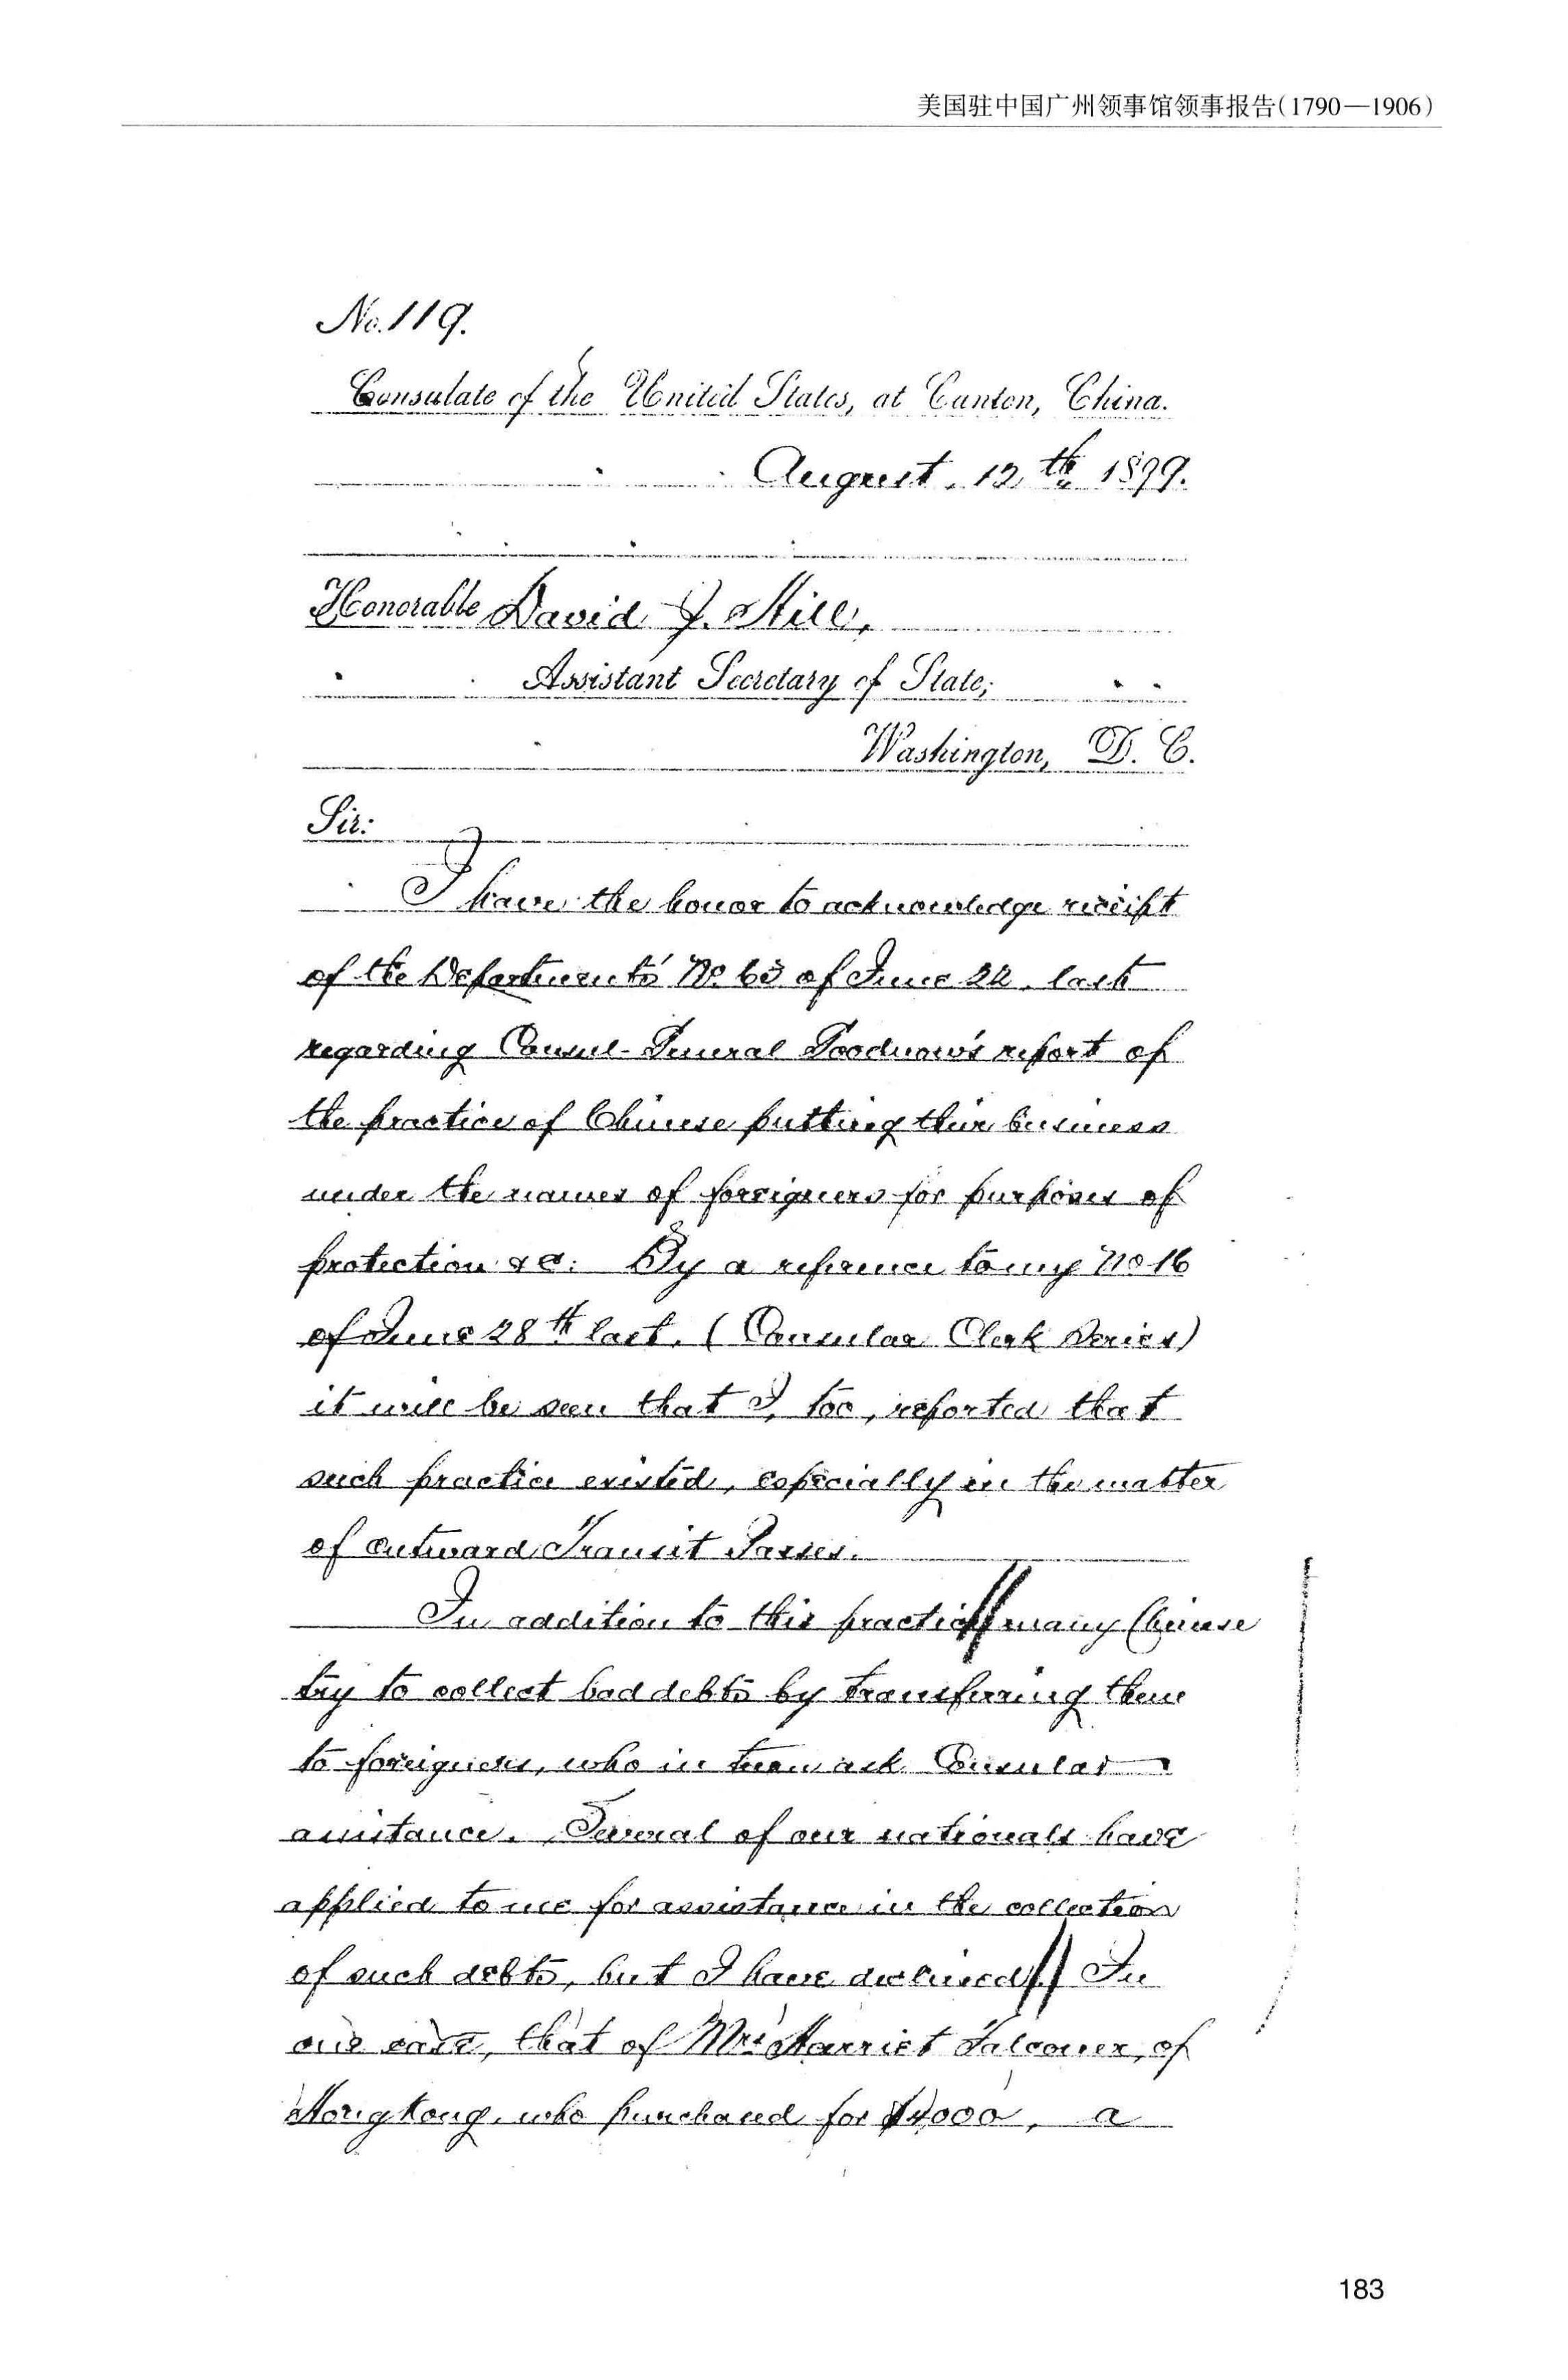 美国驻中国广州领事馆领事报告(1790—1906)
No. 119.
Consulate of the United States, at Canton, China.
August, 12th 1899.
Honorable David J. Hill,
Assistant Secretary of State,
Washington, D. C.
Sir:
I have the honor to acknowledge receipt
of the Departments' No 63 of June 22, last
regarding Consul-General Goodnow's report of
the practice of Chinese putting their business
under the names of foreigners for purposes of
protection &c: By a reference to my No 16
of June 28th last. (Consular Clerk Series)
it will be seen that I, too, reported that
such practice existed, especially in the matter
of outward Transit Passes.
In addition to this practice // many Chinese
try to collect bad debts by transferring them
to foreigners, who in turn ask Consular
assistance. Several of our nationals have
applied to me for assistance in the collection
of such debts, but I have declined. // In
one case, that of Mrs Harriet Falconer, of
Hongkong, who purchased for $4000, a
183